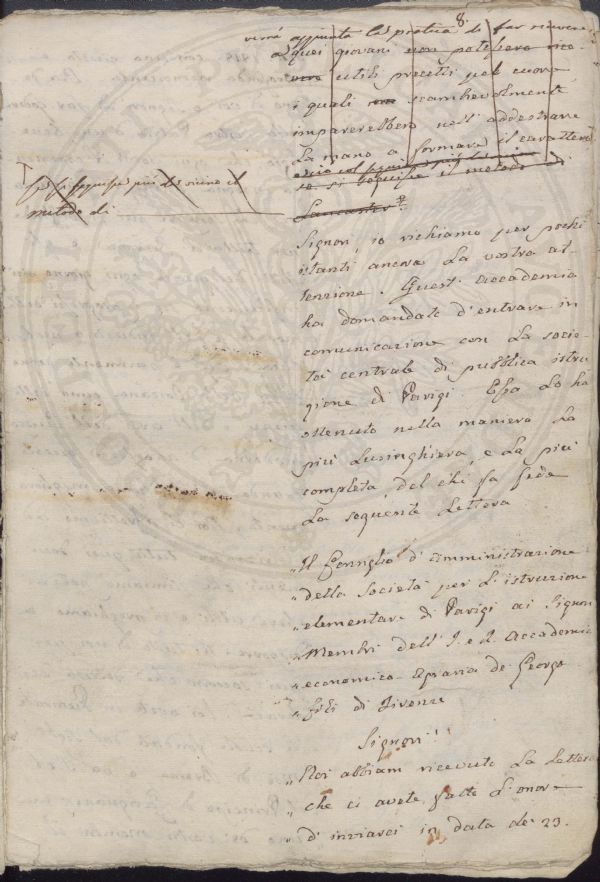 8.
verrà aggiunta la pratica di far ricever
a quei giovani non potessero rice-
vere utili precetti pel cuore
i quali scambievolmente
imparerebbero nell'addestrare
la mano a formare il carattere
se si seguisse il metodo di
Lancaster
se si seguisse più da vicino il
metodo di
Signori, io richiamo per pochi
istanti ancora la vostra at-
tenzione. Quest'accademia
ha domandato d'entrare in
comunicazione con la socie-
tà centrale di pubblica istru
zione di Parigi. Essa lo ha
ottenuto nella maniera la
più lusinghiera e la più
completa, del che fa fede
la seguente lettera
„ Il Consiglio d'amministrazione
„ della Società per l'istruzione
„ elementare di Parigi ai Signori
„ Membri dell'I. e R. Accademia
„ economico-agraria de' Georgo
„ fili di Firenze
Signori!
„ Noi abbiam ricevuto la lettera
„ che ci avete fatto l'onore
„ d'inviarci in data de' 23.